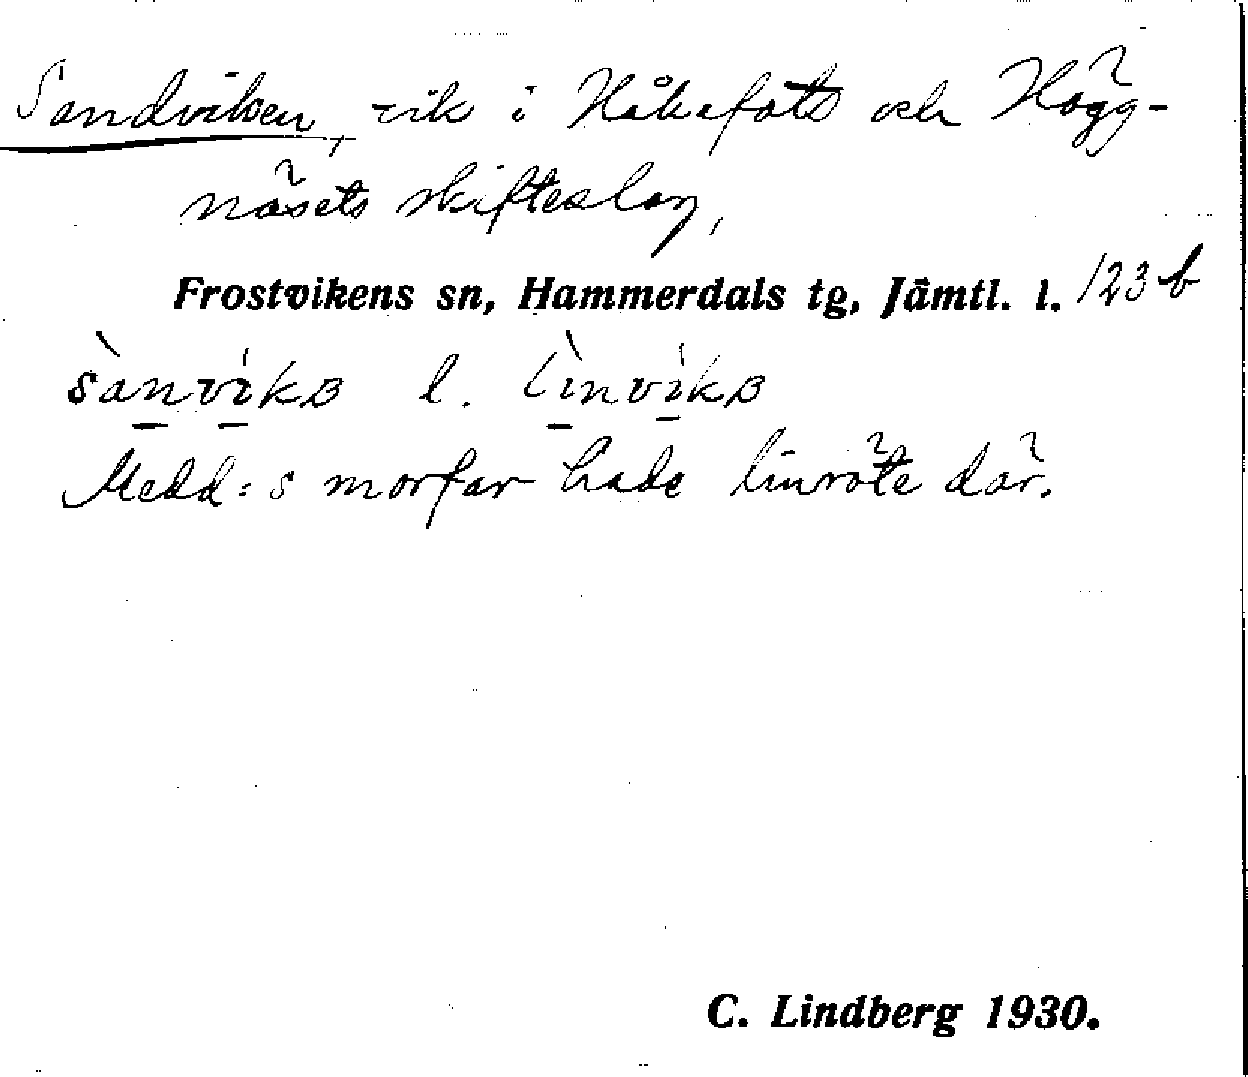 Sandviken, vik i Håkafots och Högg-
näsets skifteslag,
Frostvikens sn, Hammerdals tg, Jämtl. l. 123 b
sànvíkɞ l. lìnvíkɞ
Medd:s morfar hade linröte där.
C. Lindberg 1930.